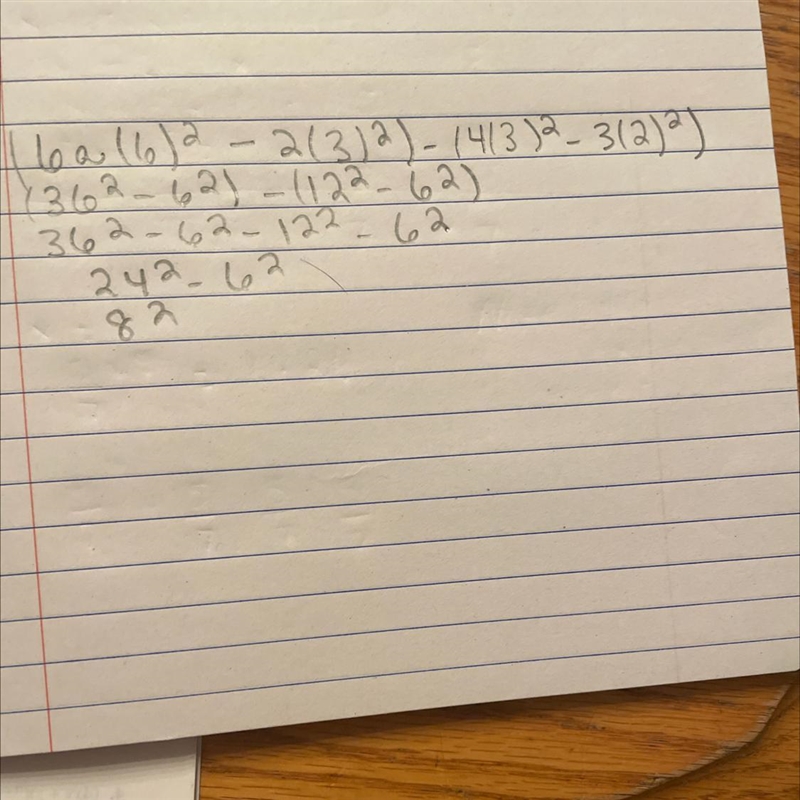 (6a(6)² - 2(3)²) - (4(3)² - 3(2)²)
(36² - 6²) - (12² - 6²)
36² - 6² - 12² - 6²
24² - 6²
8²